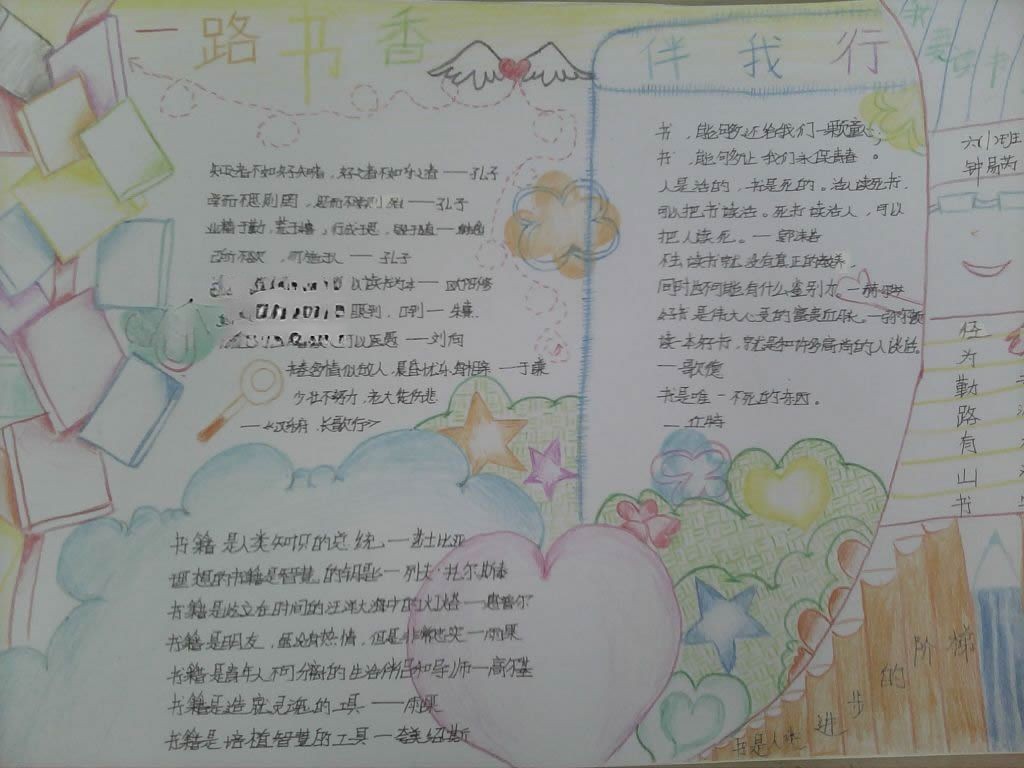 一路书香
伴我行
知之者不如好之者，好之者不如乐之者——孔子
学而不思则罔，思而不学则殆——孔子
业精于勤，荒于嬉；行成于思，毁于随——韩愈
己所不欲，勿施于人——孔子
以读书为本——欧阳修
眼到，口到——朱熹
可以医愚——刘向
书卷多情似故人，晨昏忧乐每相亲——于谦
少壮不努力，老大徒伤悲
——《汉乐府·长歌行》
书，能够还给我们一颗童心；
书，能够让我们永保青春。
人是活的，书是死的。活人读死书，
可以把书读活。死书读活人，可以
把人读死。——郭沫若
不去读书就没有真正的教养，
同时也不可能有什么鉴别力。
好书是伟大心灵的富贵血脉。
读一本好书，就是和许多高尚的人谈话。
——歌德
书是唯一不死的东西。
书籍是人类知识的总统——莎士比亚
理想的书籍是智慧的钥匙——列夫·托尔斯泰
书籍是屹立在时间的汪洋大海中的灯塔——惠普尔
书籍是朋友，虽没有热情，但是非常忠实——雨果
书籍是青年人不可分离的生活伴侣和导师——高尔基
书籍是造就灵魂的工具——雨果
书籍是培植智慧的工具——夸美绍斯
我爱读书
六(1)班
书山有路勤为径
书是人类进步的阶梯